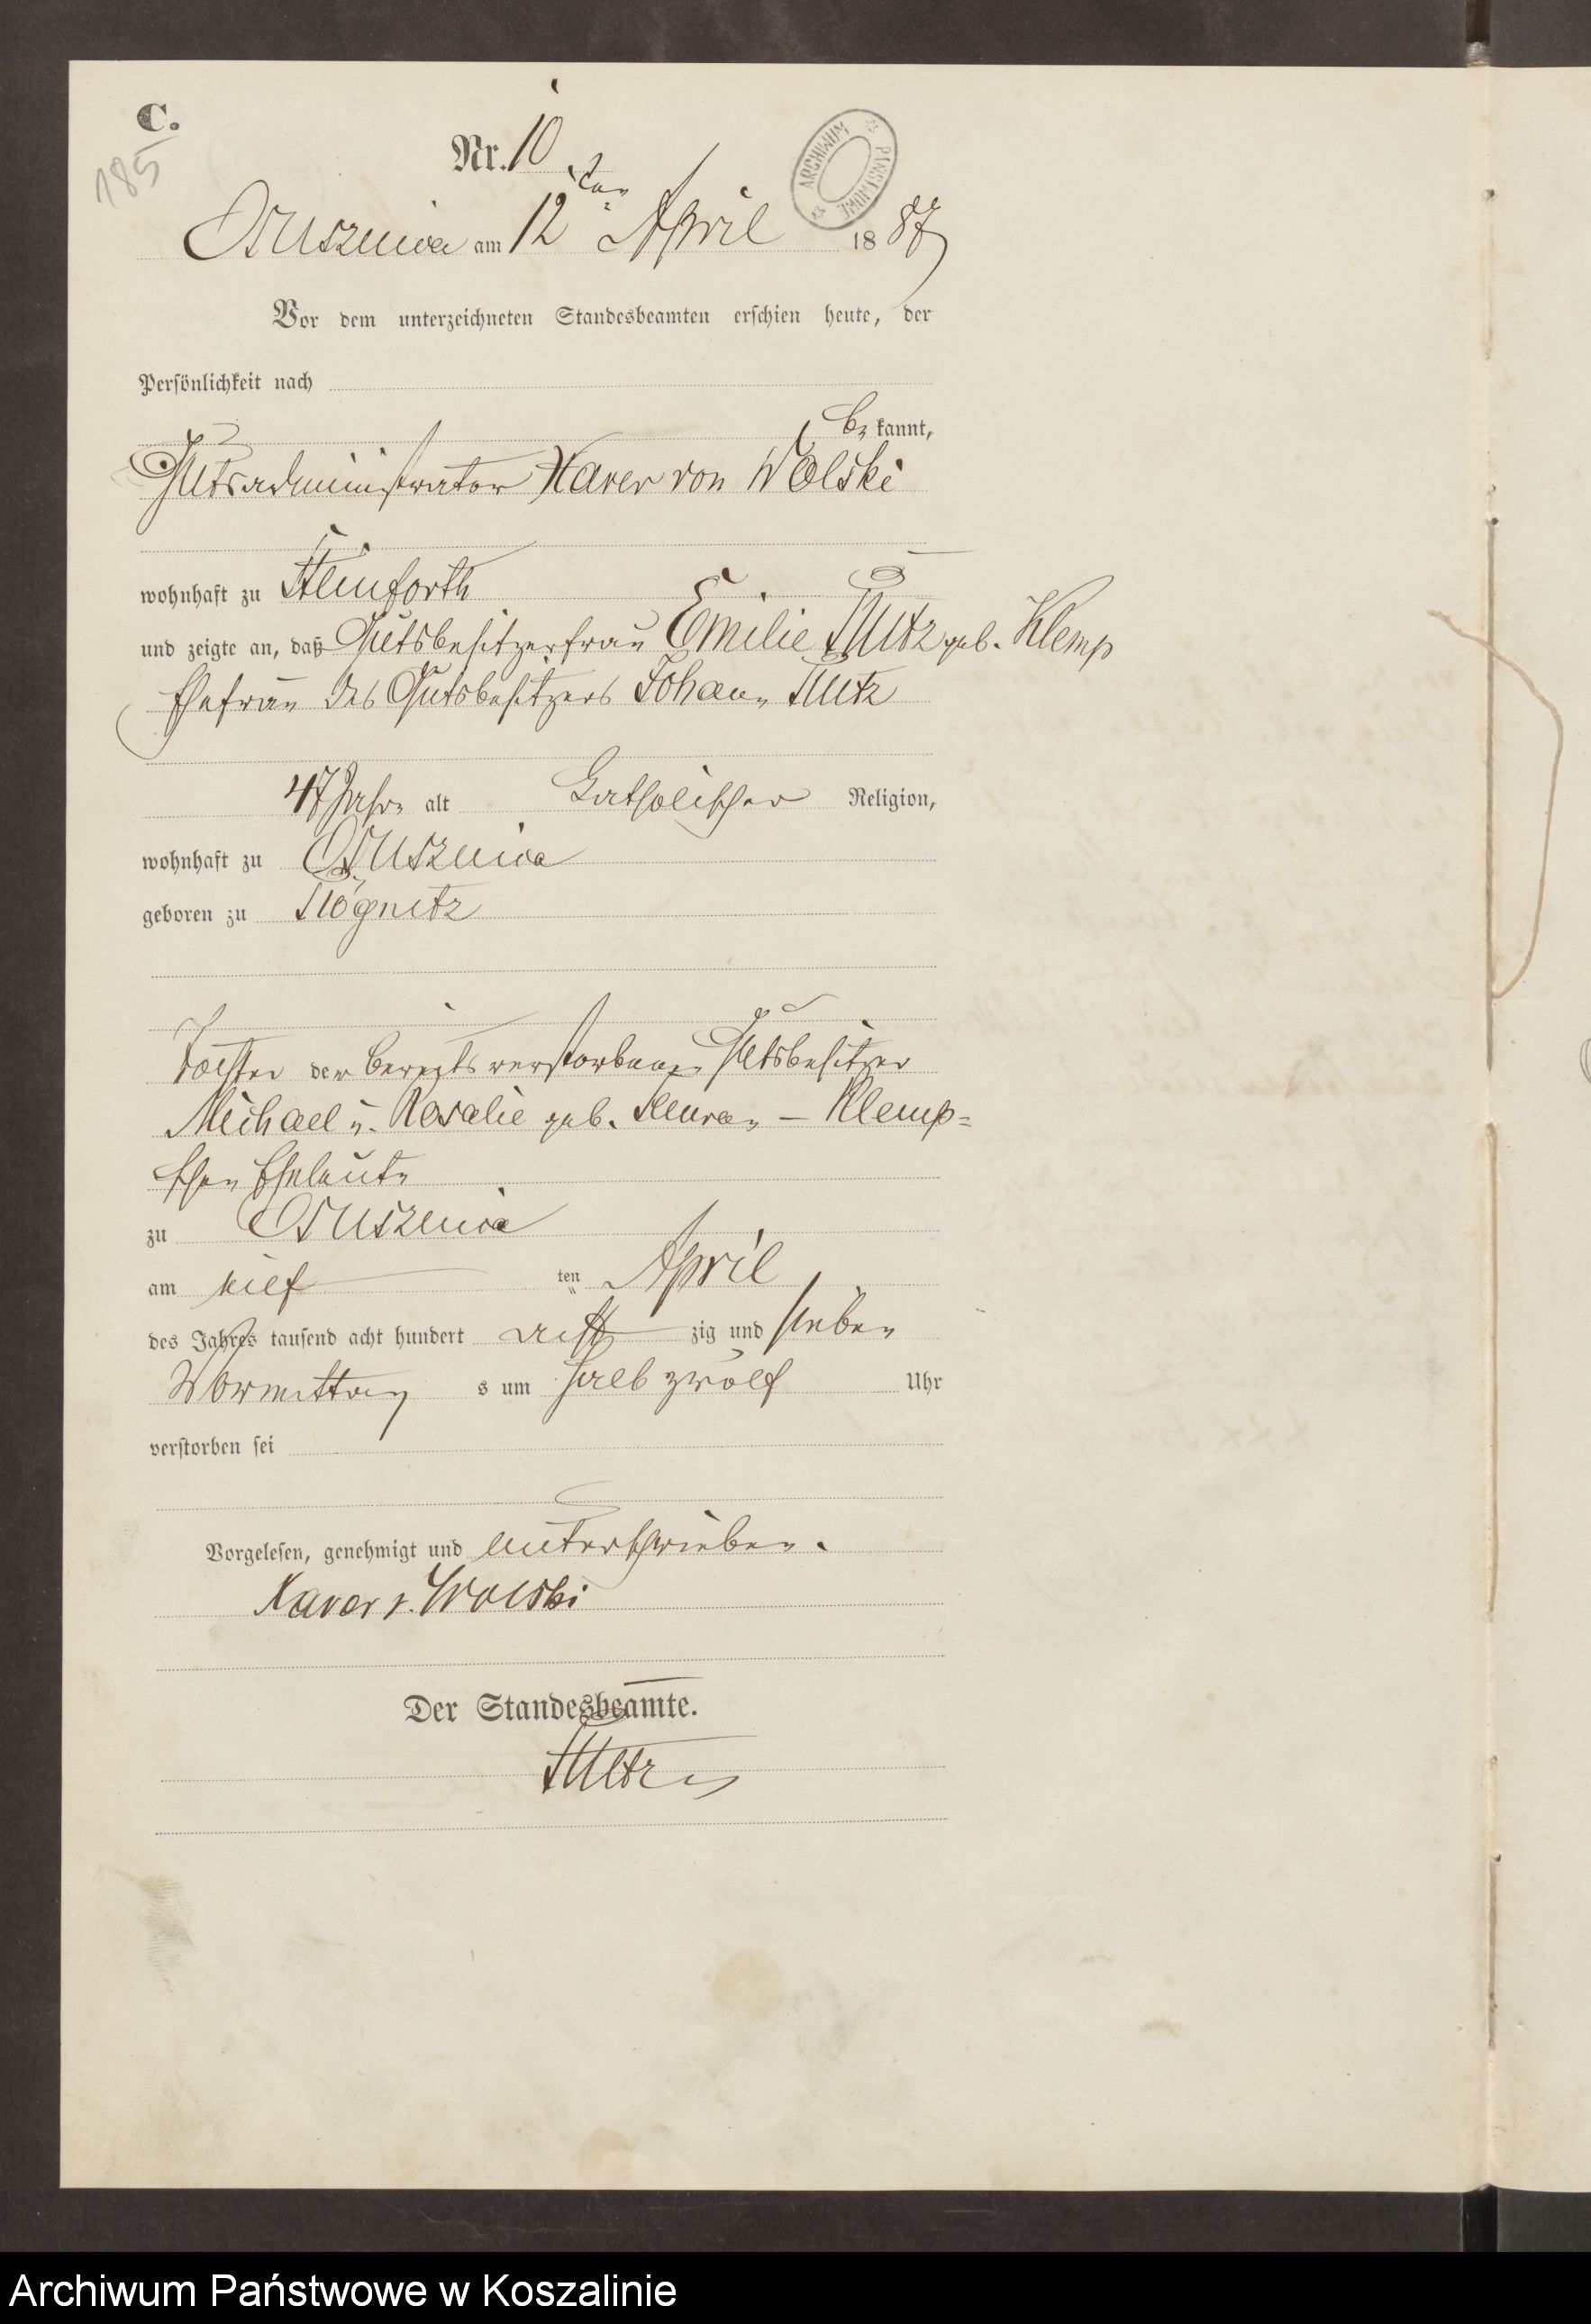 C.
185
Nr. 10
Ossuszniza am 12ten April 1887
ARCHIWUM PAŃSTWOWE
Vor dem unterzeichneten Standesbeamten erschien heute, der
Persönlichkeit nach
be kannt,
Gutsadministrator Xaver von Wolski
wohnhaft zu Steinforth
und zeigte an, daß Gutsbesitzerfrau Emilie Tutz geb. Klemp
Ehefrau des Gutsbesitzers Johann Tutz
47 Jahre alt katholischer Religion,
wohnhaft zu
geboren zu
Tochter der bereits verstorbenen Gutsbesitzer
Michael u. Rosalie geb. – Klemp=
schen Eheleute
zu
am elf ten April
des Jahres tausend acht hundert acht zig und sieben
Vormittag s um halb zwölf Uhr
verstorben sei
Vorgelesen, genehmigt und unterschrieben.
Xaver v. Wolski
Der Standesbeamte.
Tutz
Archiwum Państwowe w Koszalinie